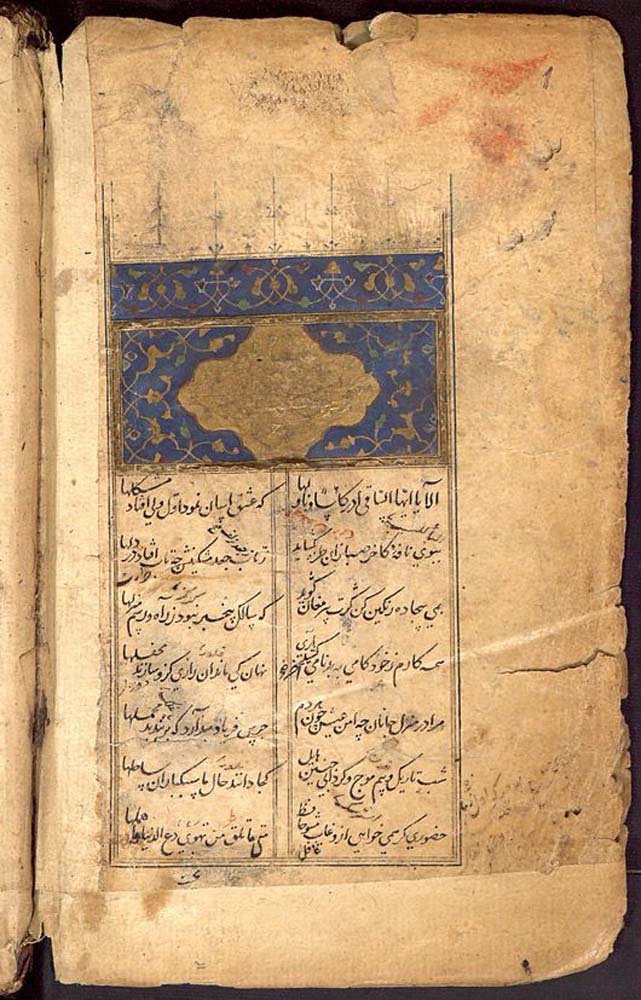 ۱
الا یا ایها الساقی ادر کاسا و ناولها که عشق آسان نمود اول ولی افتاد مشکلها
ببوی نافه کاخر صبا زان طره بگشاید ز تاب جعد مشکینش چه تاب افتاد در دلها
بمی سجاده رنگین کن گرت پیر مغان گوید که سالک بیخبر نبود ز راه و رسم منزلها
همه کارم ز خود کامی به بدنامی کشید آخر نهان کی ماند آن رازی کزو سازند محفلها
مرا در منزل جانان چه امن عیش چون هر دم جرس فریاد میدارد که بربندید محملها
شب تاریک و بیم موج و گردابی چنین هایل کجا دانند حال ما سبکباران ساحلها
حضوری گر همی خواهی ازو غایب مشو حافظ متی ما تلق من تهوی دع الدنیا و اهملها
غافل